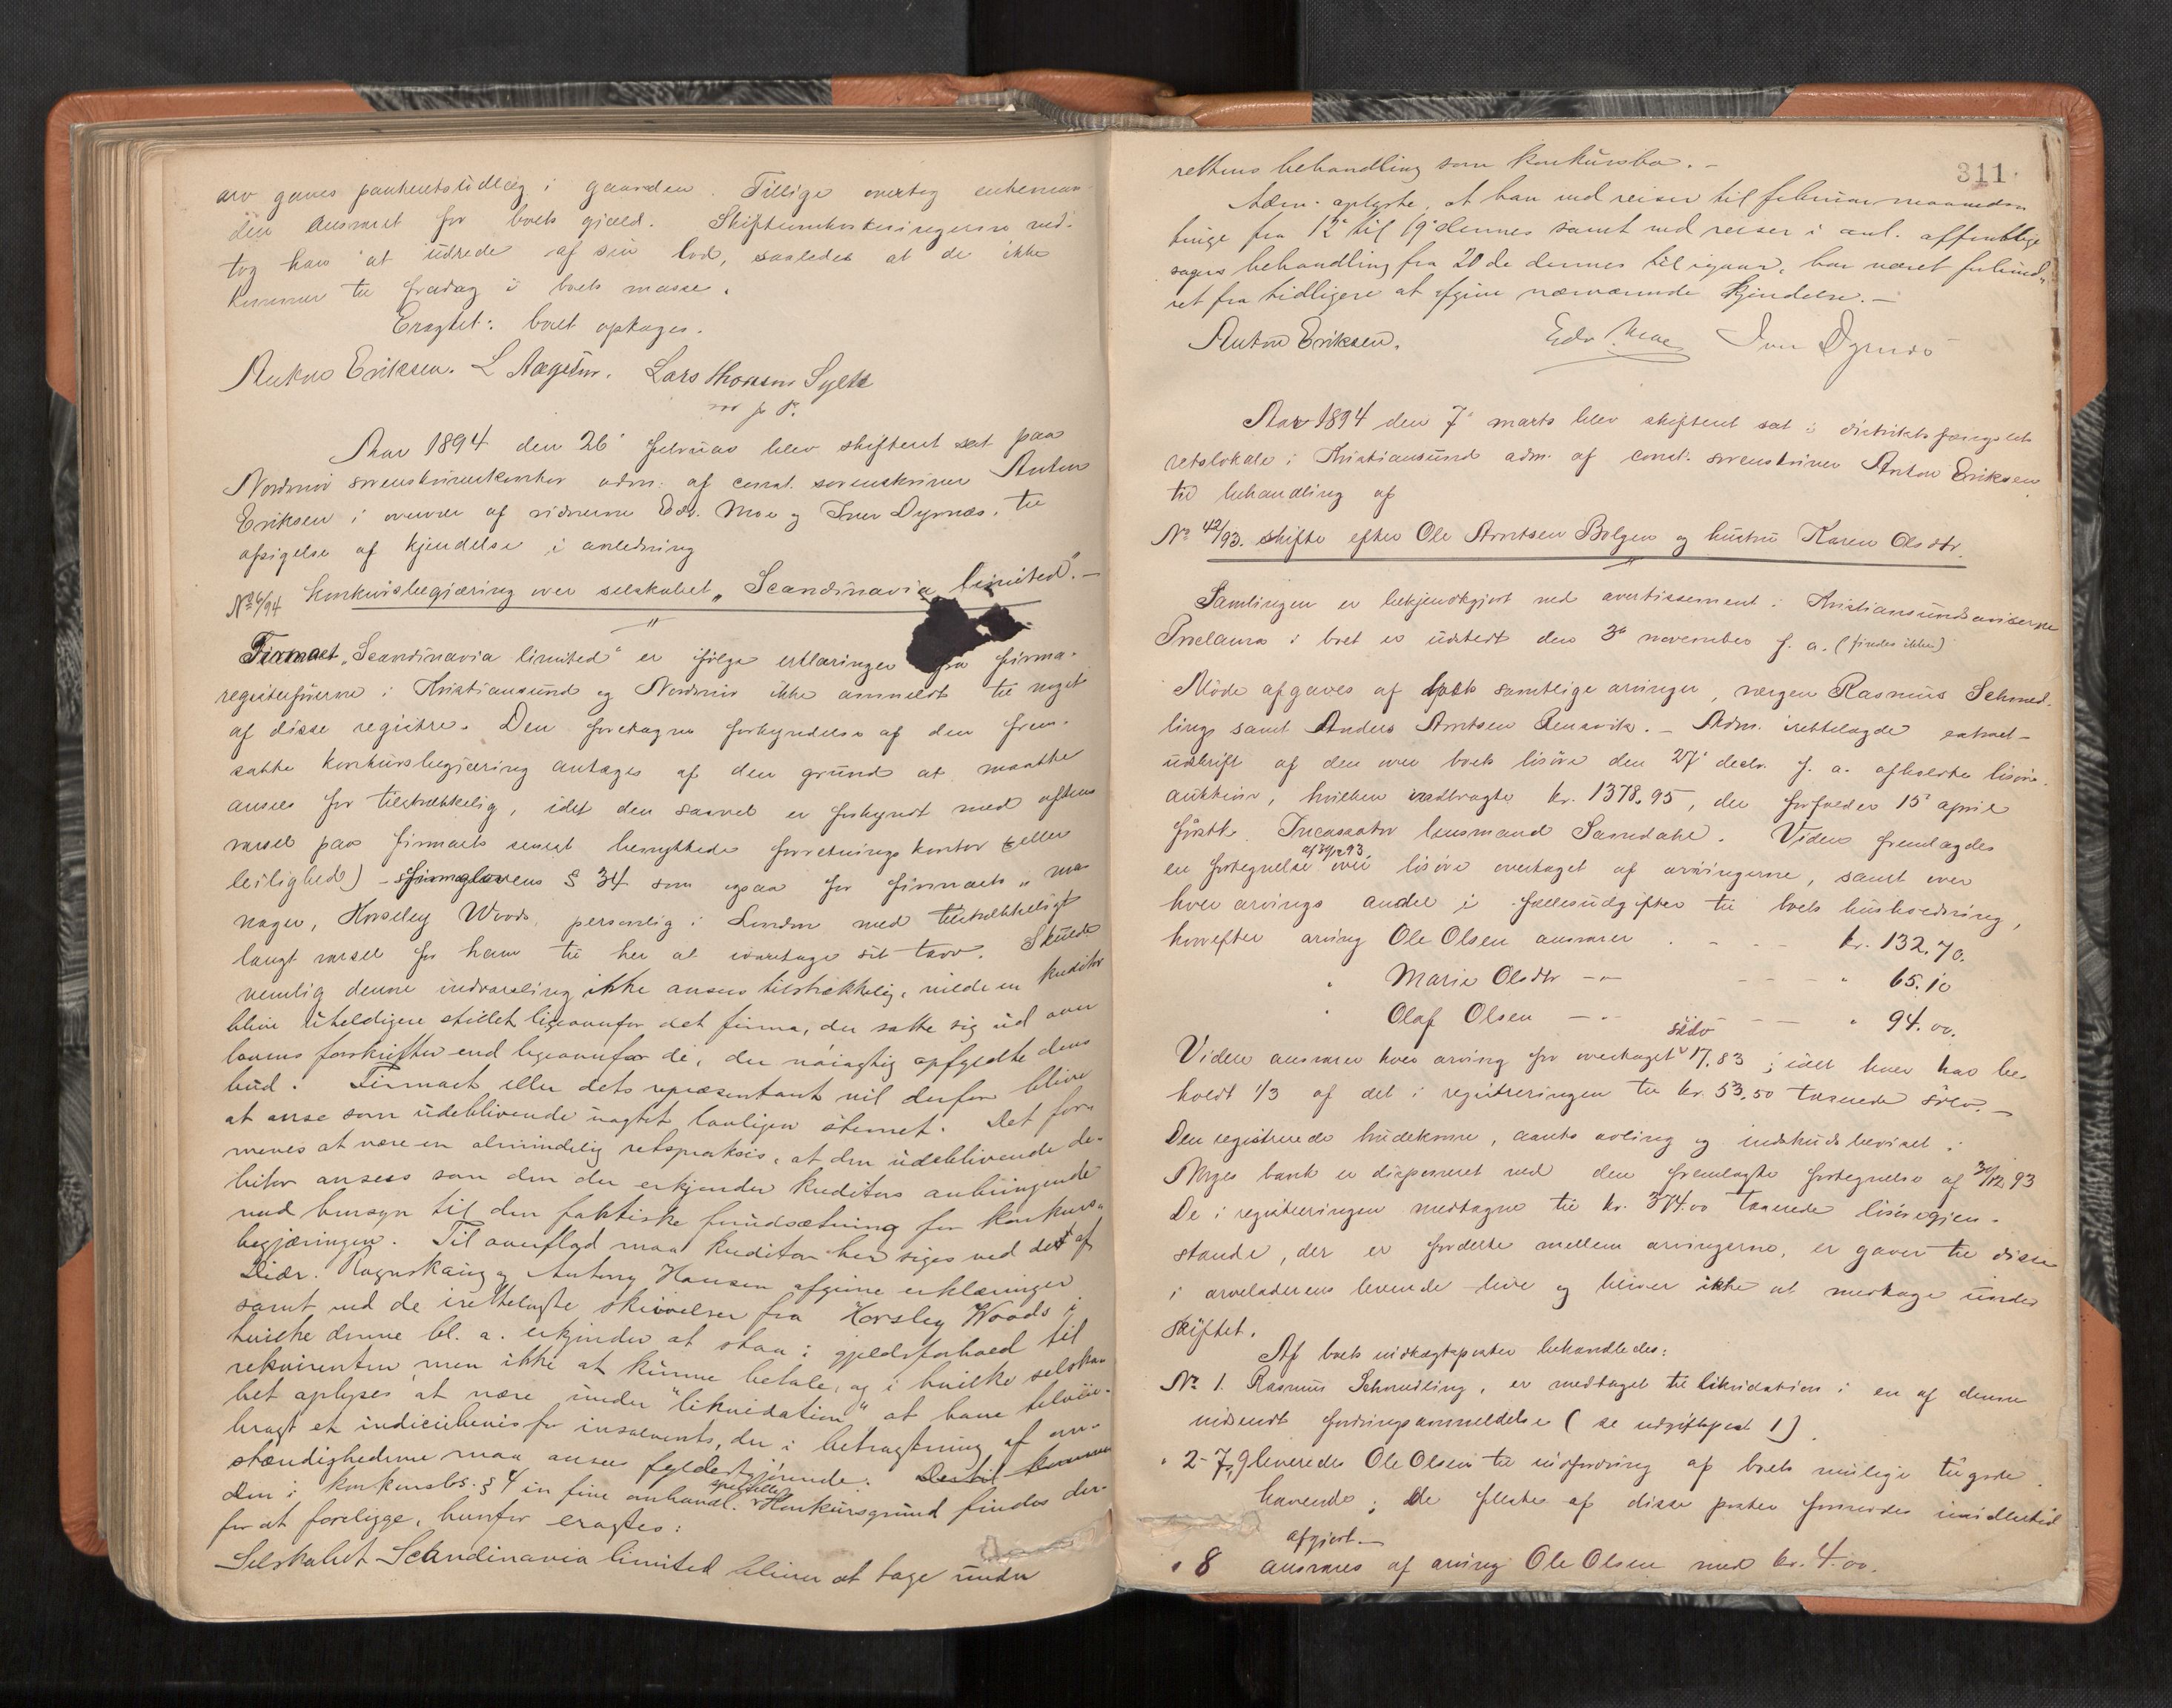 arv gaves panteretsudlæg i gaarden. Tillige overtog enkeman-
den ansvaret for boets gjæld. Skifteomkostningerne ved-
tog han at udrede af sin lod, saaledes at de ikke
kommer til fradrag i boets masse.
Eragtet: boet optages.
Anton Eriksen. L Nægstur. Lars Thomsen Sylte
m f P.
Aar 1894 den 26' februar blev skifteret sat paa
Nordmør sorenskriverkontor adm. af const. sorenskriver Anton
Eriksen i overvær af vidnerne Edv. Moe og Iver Dyrnæs, til
afsigelse af kjendelse i anledning
No 6/94 Konkursbegjæring over selskabet „Scandinavia limited".-
Firmaet „Scandinavia limited" er ifølge erklæringer fra firma-
registerførerne i Kristiansund og Nordmør ikke anmeldt til noget
af disse registre. Den foretagne forkyndelse af den frem-
satte konkursbegjæring antages af den grund at maatte
ansees for tilstrækkelig, idet den saavel er forkyndt med aftens
varsel paa firmaets senest benyttede forretningskontor (eller
leilighed) - firmalovens § 34 som ogsaa for firmaets „ma-
nager, Horseley Woods, personlig i London med tilstrækkeligt
langt varsel for ham til her at ivaretage sit tarv. Skulde
nemlig denne indvarsling ikke ansees tilstrækkelig, vilde en kreditor
blive uheldigere stillet ligeoverfor det firma, der satte sig ud over
lovens forskrifter end ligeoverfor de, der nøiagtig opfyldte dens
bud. Firmaet eller dets repræsentant vil derfor blive
at anse som udeblivende uagtet lovligen stevnet. Det for-
menes at være en almindelig retspraksis, at den udeblivende de-
bitor ansees som den der erkjender kreditors anbringende
med hensyn til den faktiske forudsætning for konkurs-
begjæringen. Til overflod maa kreditor her siges ved det af
Didr. Rognskaug og Antony Hansen afgivne erklæringer
samt ved de irettelagte skrivelser fra Horsley Woods i
hvilke denne bl. a. erkjender at staa i gjeldsforhold til
rekvirenten men ikke at kunne betale, og i hvilke selska-
bet oplyses at være under "likvidation" at have tilveie-
bragt et indiciebevis for insolvents, der i betragtning af om-
stændighederne maa ansees fyldestgjørende. Dertil kommer
Den i konkurslov. § 4 in fine omhandl. specielle Konkursgrund findes der-
for at foreligge, hvorfor eragtes:
Selskabet Scandinavia limited bliver at tage under
311.
rettens behandling som konkursbo. -
Adm. oplyste, at han ved reiser til februarmaaneds
tinge fra 12' til 19' dennes samt ved reiser i anl. offentlige
sagers behandling fra 20de dennes til igaar, har været forhind-
ret fra tidligere at afgive nærværende kjendelse. -
Anton Eriksen. Edv. Moe Iver Dyrnæs
Aar 1894 den 7' marts blev skifteret sat i distriktsfængslets
retslokale i Kristiansund adm. af const. sorenskriver Anton Eriksen
til behandling af
No 42/93. Skifte efter Ole Arntsen Bolgen og hustru Karen Olsdtr.
Samlingen er bekjendtgjort ved avertissement i Kristiansundsaviserne
Proclama i boet er udstedt den 3' november f. a. (findes ikke)
Møde afgaves af boets samtlige arvinger, værgen Rasmus Schmed-
ling samt Anders Arntsen Rensvik. - Adm. irettelagde extract-
udskrift af den over boets løsøre den 27' decbr. f. a. afholdte løsøre-
auktion, hvilken indbragte kr. 1378.95, der forfalder 15' april
førstk. Incassator lensmand Sandahl. Videre fremlagdes
en fortegnelse af 30/12 93 over løsøre overtaget af arvingerne, samt over
hver arvings andel i fællesudgifter til boets husholdning,
hvorefter arving Ole Olsen ansvarer . - - - kr. 132.70.
" Marie Olsdtr - " - - - - " 65.10
" Olaf Olsen - " - - - " 94.00.
Videre ansvarer hver arving for overtaget sølv 17.83; idet hver har be-
holdt 1/3 af det i registreringen til kr. 53.50 taxerede sølv. -
Den registrerede hudekomre, aarets avling og indskudsbeviset i
Norges bank er disponeret ved den fremlagte fortegnelse af 30/12 93
De i registreringen medtagne til kr. 374.00 taxerede løsøregjen-
stande, der er fordelte mellem arvingerne, er gaver til disse
i arveladerens levende live og bliver ikke at medtage under
skiftet.
Af boets indtægtsposter behandledes:
No 1. Rasmus Schmedling, er medtaget til likvidation i en af denne
indsendt fordringsanmeldelse (se udgiftspost 1).
" 2-7, 9 leveredes Ole Olsen til indfordring af boets mulige tilgode-
havende; de fleste af disse poster formodes imidlertid
afgjort. -
" 8 ansvares af arving Ole Olsen med kr. 4.00.